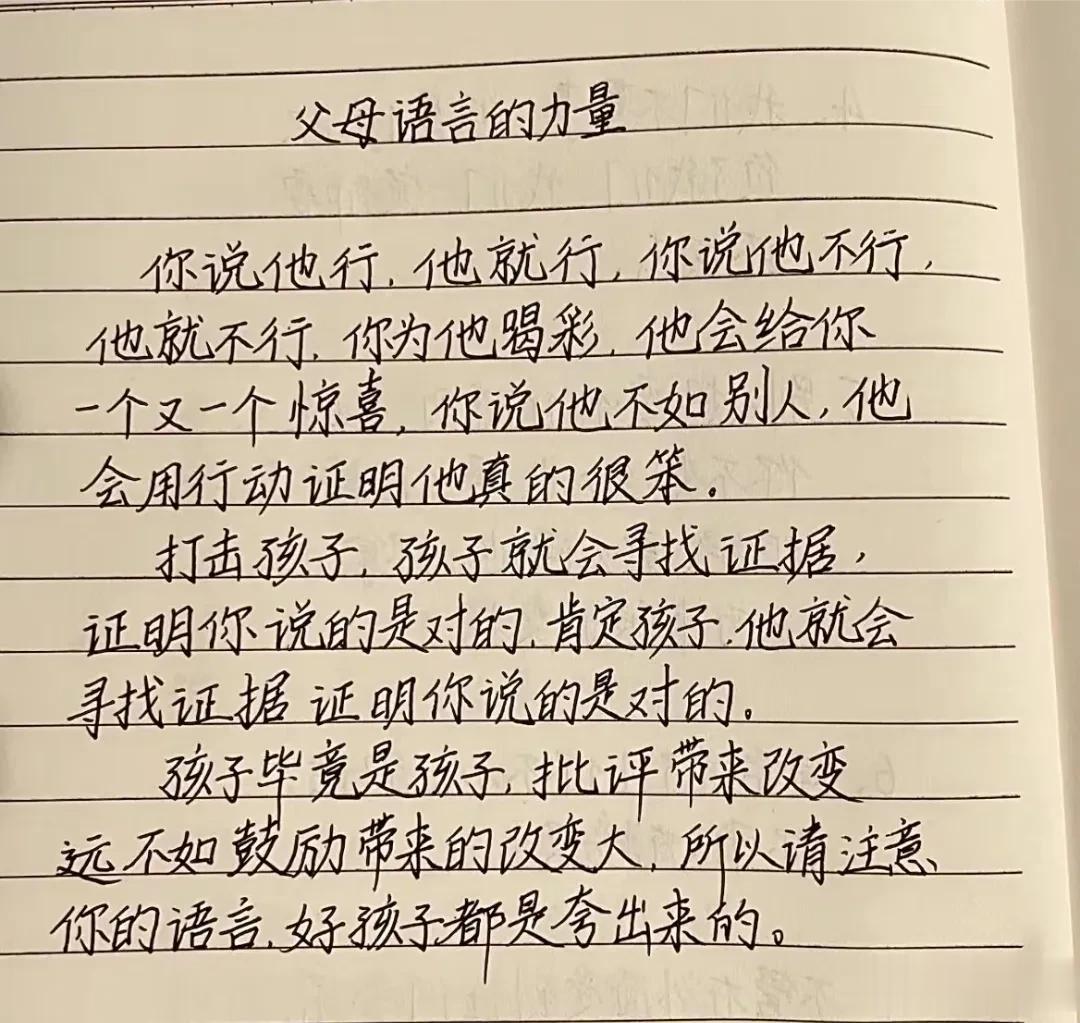 父母语言的力量
你说他行,他就行,你说他不行,
他就不行,你为他喝彩,他会给你
一个又一个惊喜,你说他不如别人,他
会用行动证明他真的很笨。
打击孩子,孩子就会寻找证据,
证明你说的是对的,肯定孩子,他就会
寻找证据证明你说的是对的。
孩子毕竟是孩子,批评带来改变
远不如鼓励带来的改变大,所以请注意
你的语言,好孩子都是夸出来的。